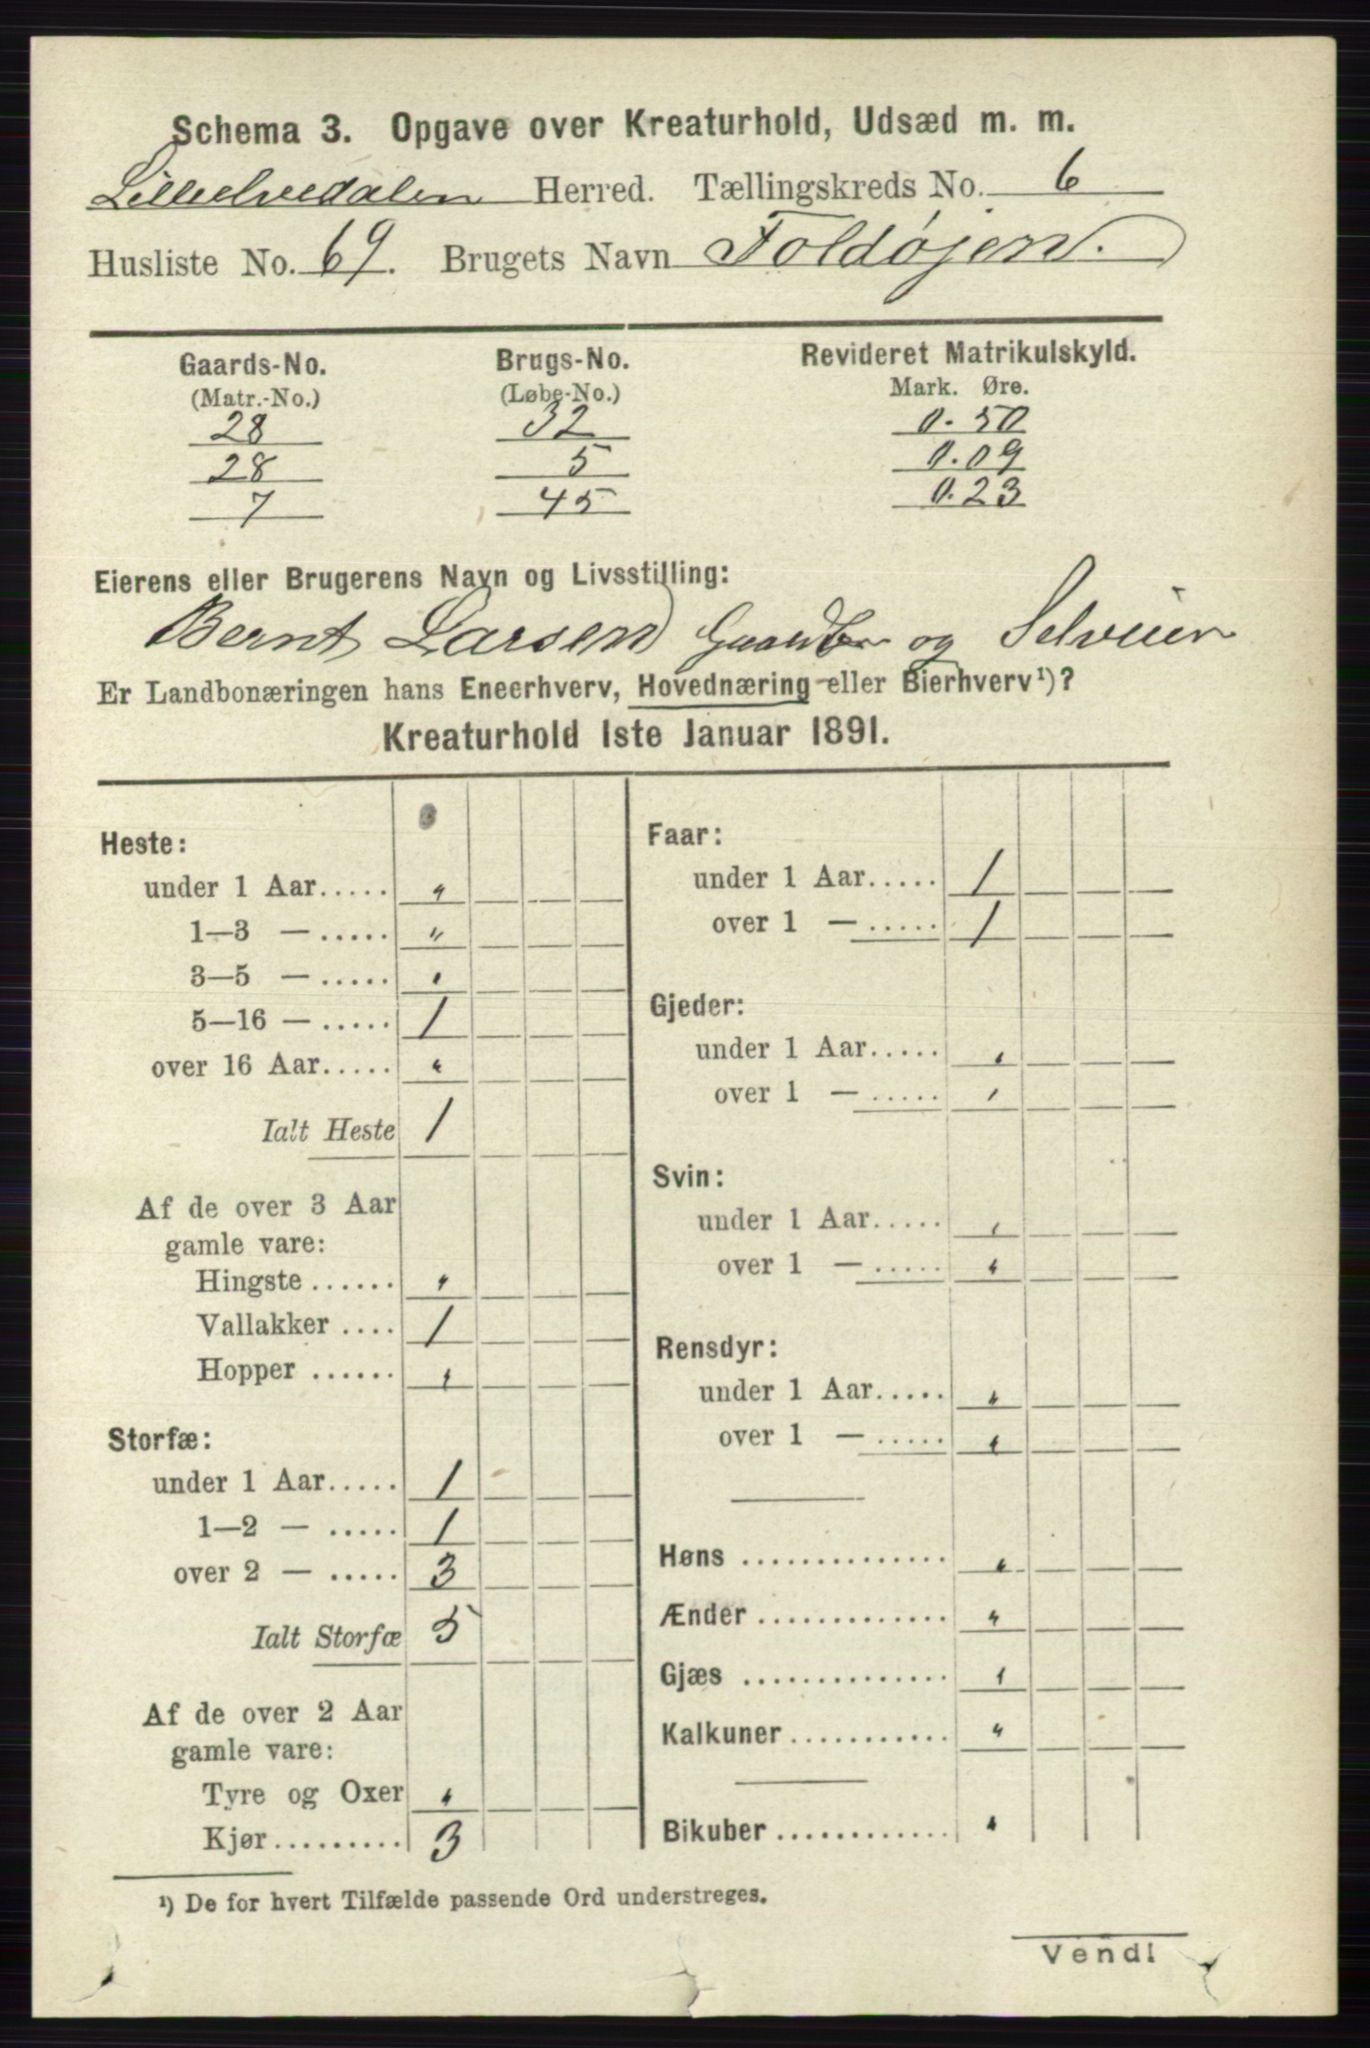 Schema 3. Opgave over Kreaturhold, Udsæd m. m.
Lilleelvedalen Herred. Tællingskreds No. 6
Husliste No. 69. Brugets Navn Foldøjen.
Gaards-No. Brugs-No. Revideret Matrikulskyld.
(Matr.-No.) (Løbe-No.) Mark. Øre.
28 32 0.50
28 5 0.09
7 45 0.23
Eierens eller Brugerens Navn og Livsstilling:
Bernt Larsen Gaardbr og Selveier
Er Landbonæringen hans Eneerhverv, Hovednæring eller Bierhverv¹)?
Kreaturhold 1ste Januar 1891.
Heste:
under 1 Aar..... "
1—3 — ..... "
3—5 — ..... "
5—16 — ..... 1
over 16 Aar..... "
Ialt Heste 1
Af de over 3 Aar
gamle vare:
Hingste ...... "
Vallakker .... 1
Hopper ...... "
Storfæ:
under 1 Aar..... 1
1—2 — ..... 1
over 2 — ..... 3
Ialt Storfæ 5
Af de over 2 Aar
gamle vare:
Tyre og Oxer "
Kjør......... 3
Faar:
under 1 Aar..... 1
over 1 — ..... 1
Gjeder:
under 1 Aar..... "
over 1 — ..... "
Svin:
under 1 Aar..... "
over 1 — ..... "
Rensdyr:
under 1 Aar..... "
over 1 — ..... "
Høns .............. "
Ænder ............. "
Gjæs .............. "
Kalkuner ........... "
Bikuber ............ "
¹) De for hvert Tilfælde passende Ord understreges.
Vend!